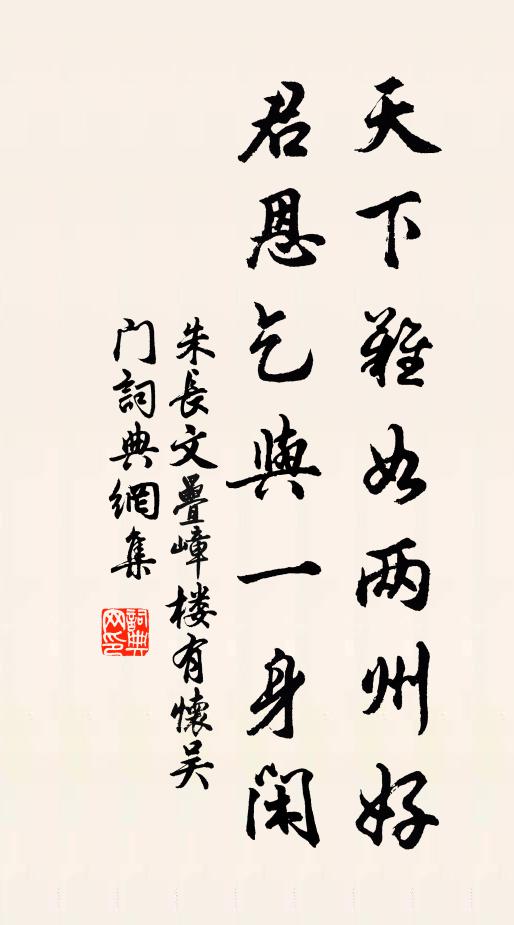 天下難如两州好
君恩乞與一身闲
朱長文疊嶂楼有懷吴
门詞典網集
詞典
网印